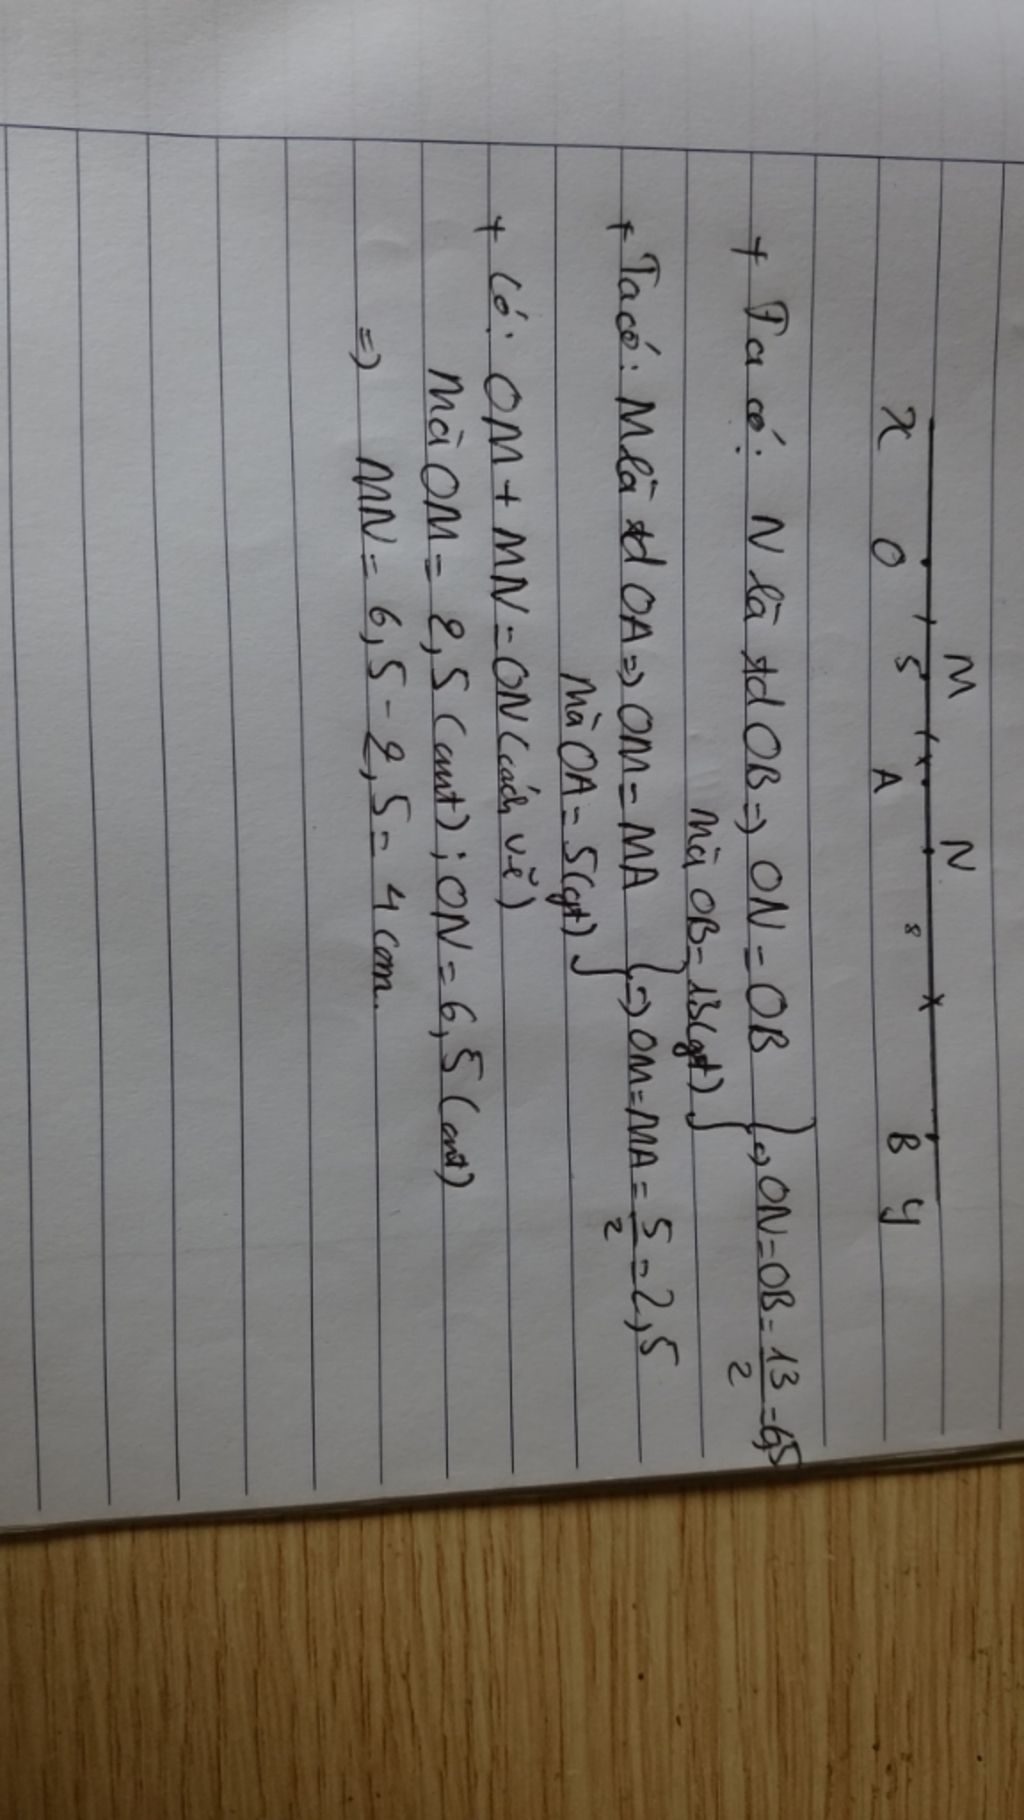 M N
x O 5 A 8 B y
+ Ta có: N là tđ OB => ON = OB } => ON = OB = 13/2 = 6,5
mà OB = 13 (gt)
+ Ta có: M là tđ OA => OM = MA } => OM = MA = 5/2 = 2,5
mà OA = 5 (gt)
+ Có: OM + MN = ON (cách vẽ)
mà OM = 2,5 (cmt); ON = 6,5 (cmt)
=> MN = 6,5 - 2,5 = 4 cm.